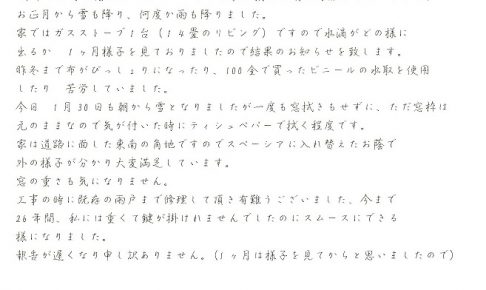 お正月から雪も降り、何度か雨も降りました。
家ではガスストーブ1台(14畳のリビング)ですので水滴がどの様に
出るか 1ヶ月様子を見ておりましたので結果のお知らせを致します。
昨冬まで布がびっしょりになったり、100金で買ったビニールの水取を使用
したり 苦労していました。
今日 1月30日も朝から雪となりましたが一度も窓拭きもせずに、ただ窓枠は
元のままなので気が付いた時にティシュペパーで拭く程度です。
家は道路に面した東南の角地ですのでスペーシアに入れ替えたお蔭で
外の様子が分かり大変満足しています。
窓の重さも気になりません。
工事の時に既存の雨戸まで修理して頂き有難うございました、今まで
26年間、私には重くて鍵が掛けれませんでしたのにスムースにできる
様になりました。
報告が遅くなり申し訳ありません。(1ヶ月は様子を見てからと思いましたので)